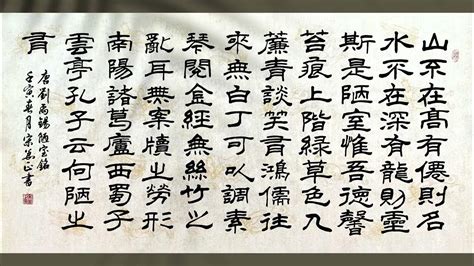 山不在高有僊則名
水不在深有龍則靈
斯是陋室惟吾德馨
苔痕上階綠草色入
簾青談笑有鴻儒往
來無白丁可以調素
琴閱金經無絲竹之
亂耳無案牘之勞形
南陽諸葛廬西蜀子
雲亭孔子云何陋之
有
唐劉禹錫陋室銘
壬寅春月宗正書